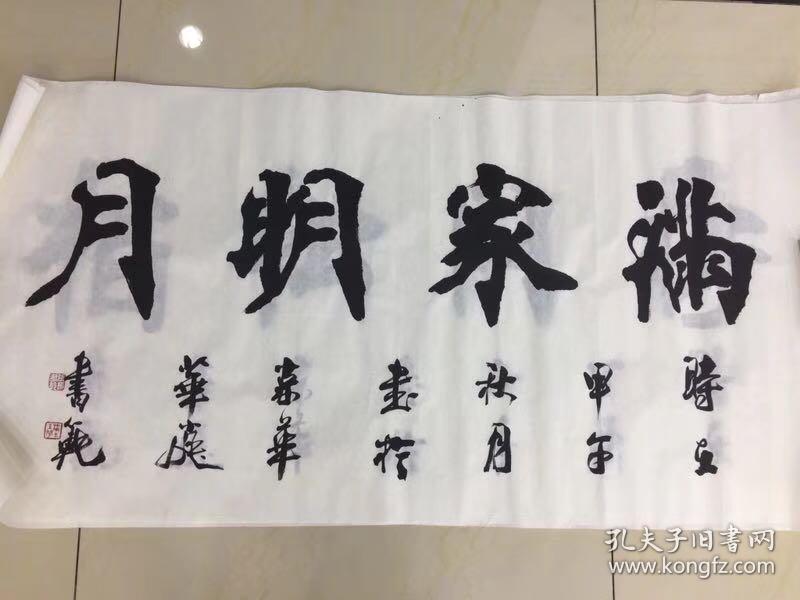 滿家明月
時在
甲午
秋月
書於
華
華
書
孔夫子旧书网
www.kongfz.com